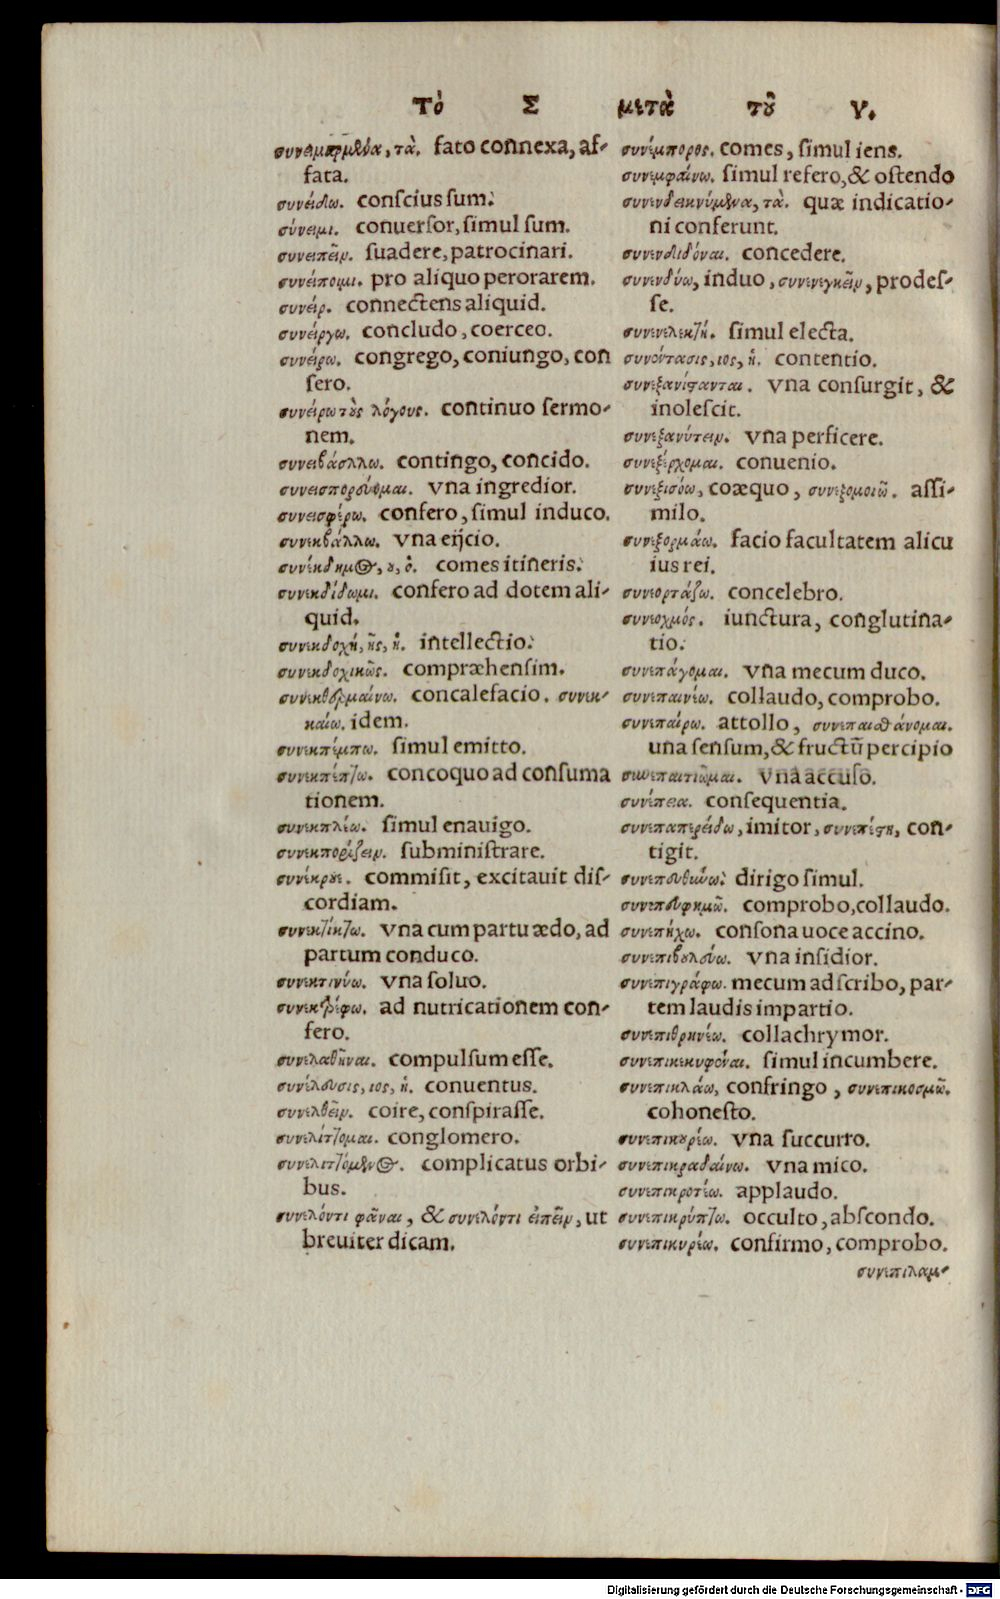 Τὸ Σ μετὰ τοῦ Υ.
συνειμαρμένα, τὰ. fato connexa, af-
fata.
συνείδω. conscius sum.
σύνειμι. conuersor, simul sum.
συνειπεῖν. suadere, patrocinari.
συνείποιμι. pro aliquo perorarem.
συνείρ. connectens aliquid.
συνείργω. concludo, coerceo.
συνείρω. congrego, coniungo, con
sero.
συνείρω τοὺς λόγους. continuo sermo-
nem.
contingo, concido.
συνεισπορεύομαι. vna ingredior.
συνεισφέρω. confero, simul induco.
συνεκβάλλω. vna eijcio.
συνέκδημος, ου, ὁ. comes itineris.
συνεκδίδωμι. confero ad dotem ali-
quid.
συνεκδοχή, ῆς, ἡ. intellectio.
συνεκδοχικῶς. compræhensim.
συνεκθερμαίνω. concalefacio. συνεκ-
καίω. idem.
συνεκπέμπω. simul emitto.
συνεκπέπτω. concoquo ad consuma
tionem.
συνεκπλέω. simul enauigo.
συνεκπορίζειν. subministrare.
συνέκρουε. commisit, excitauit dis-
cordiam.
συνεκτίκτω. vna cum partu ædo, ad
partum conduco.
συνεκτινύω. vna soluo.
συνεκτρέφω. ad nutricationem con-
fero.
συνελαθῆναι. compulsum esse.
συνέλευσις, ιος, ἡ. conuentus.
συνελθεῖν. coire, conspirasse.
συνελίττομαι. conglomero.
συνελιττόμενος. complicatus orbi-
bus.
συνελόντι φᾶναι, & συνελόντι εἰπεῖν, ut
breuiter dicam.
συνέμπορος. comes, simul iens.
συνεμφαίνω. simul refero, & ostendo
συνενδεικνύμενα, τὰ. quæ indicatio-
ni conferunt.
συνενδιδόναι. concedere.
συνενδύω, induo, συνενεγκεῖν, prodes-
se.
simul electa.
συνέντασις, ιος, ἡ. contentio.
συνεξανίστανται. vna consurgit, &
inolescit.
συνεξανύτειν. vna perficere.
συνεξέρχομαι. conuenio.
συνεξισόω, coæquo, συνεξομοιῶ. assi-
milo.
συνεξορμάω. facio facultatem alicu
ius rei.
συνεορτάζω. concelebro.
συνεοχμός. iunctura, conglutina-
tio.
συνεπάγομαι. vna mecum duco.
συνεπαινέω. collaudo, comprobo.
συνεπαίρω. attollo, συνεπαισθάνομαι.
una sensum, & fructū percipio
συνεπαιτιῶμαι. vna accuso.
συνέπεια. consequentia.
συνεπαπερείδω, imitor, συνεπέστη, con-
tigit.
συνεπευθύνω. dirigo simul.
συνεπευφημῶ. comprobo, collaudo.
συνεπήχω. consona uoce accino.
συνεπιβουλεύω. vna insidior.
συνεπιγράφω. mecum adscribo, par-
tem laudis impartio.
συνεπιθρηνέω. collachrymor.
συνεπικεκυφέναι. simul incumbere.
συνεπικλάω, confringo, συνεπικοσμῶ.
cohonesto.
συνεπικουρέω. vna succurro.
συνεπικραδαίνω. vna mico.
συνεπικροτέω. applaudo.
συνεπικρύπτω. occulto, abscondo.
συνεπικυρέω. confirmo, comprobo.
συνεπιλαμ-
Digitalisierung gefördert durch die Deutsche Forschungsgemeinschaft - DFG